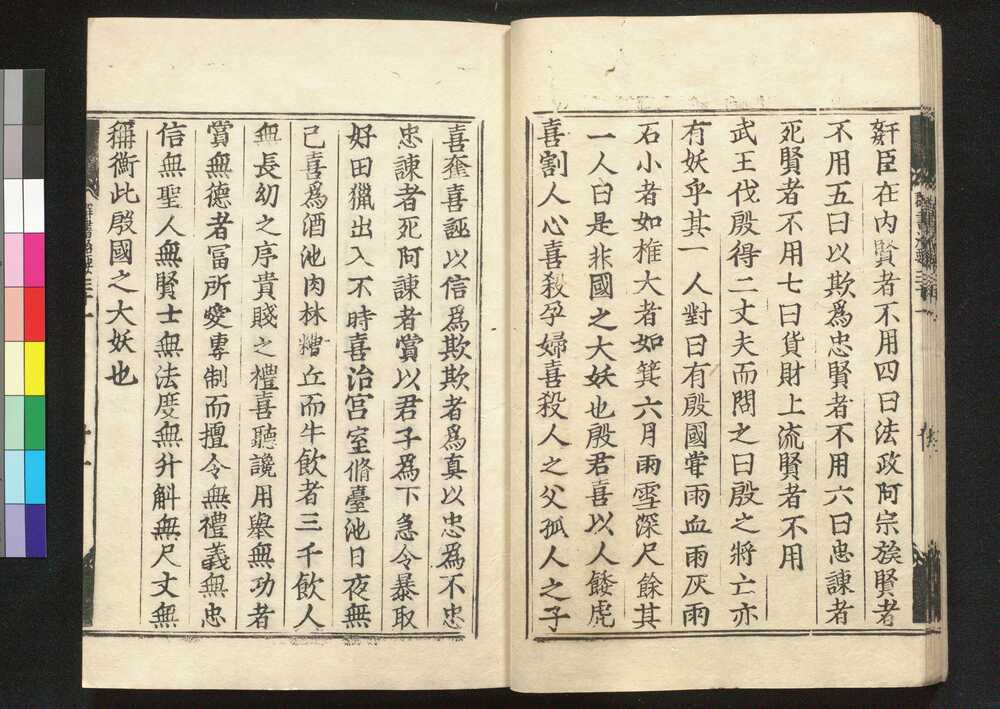 姧臣在内賢者不用四曰法政阿宗族賢者
不用五曰以欺爲忠賢者不用六曰忠諫者
死賢者不用七曰貨財上流賢者不用
武王伐殷得二丈夫而問之曰殷之將亡亦
有妖乎其一人對曰有殷國甞雨血雨灰雨
石小者如椎大者如箕六月雨雪深尺餘其
一人曰是非國之大妖也殷君喜以人餧虎
喜割人心喜殺孕婦喜殺人之父孤人之子
喜奪喜誣以信爲欺欺者爲真以忠爲不忠
忠諫者死阿諫者賞以君子爲下急令暴取
好田獵出入不時喜治宮室脩臺池日夜無
已喜爲酒池肉林糟丘而牛飲者三千飲人
無長幼之序貴賤之禮喜聽讒用舉無功者
賞無德者冨所愛專制而擅令無禮義無忠
信無聖人無賢士無法度無升斛無尺丈無
稱衡此殷國之大妖也